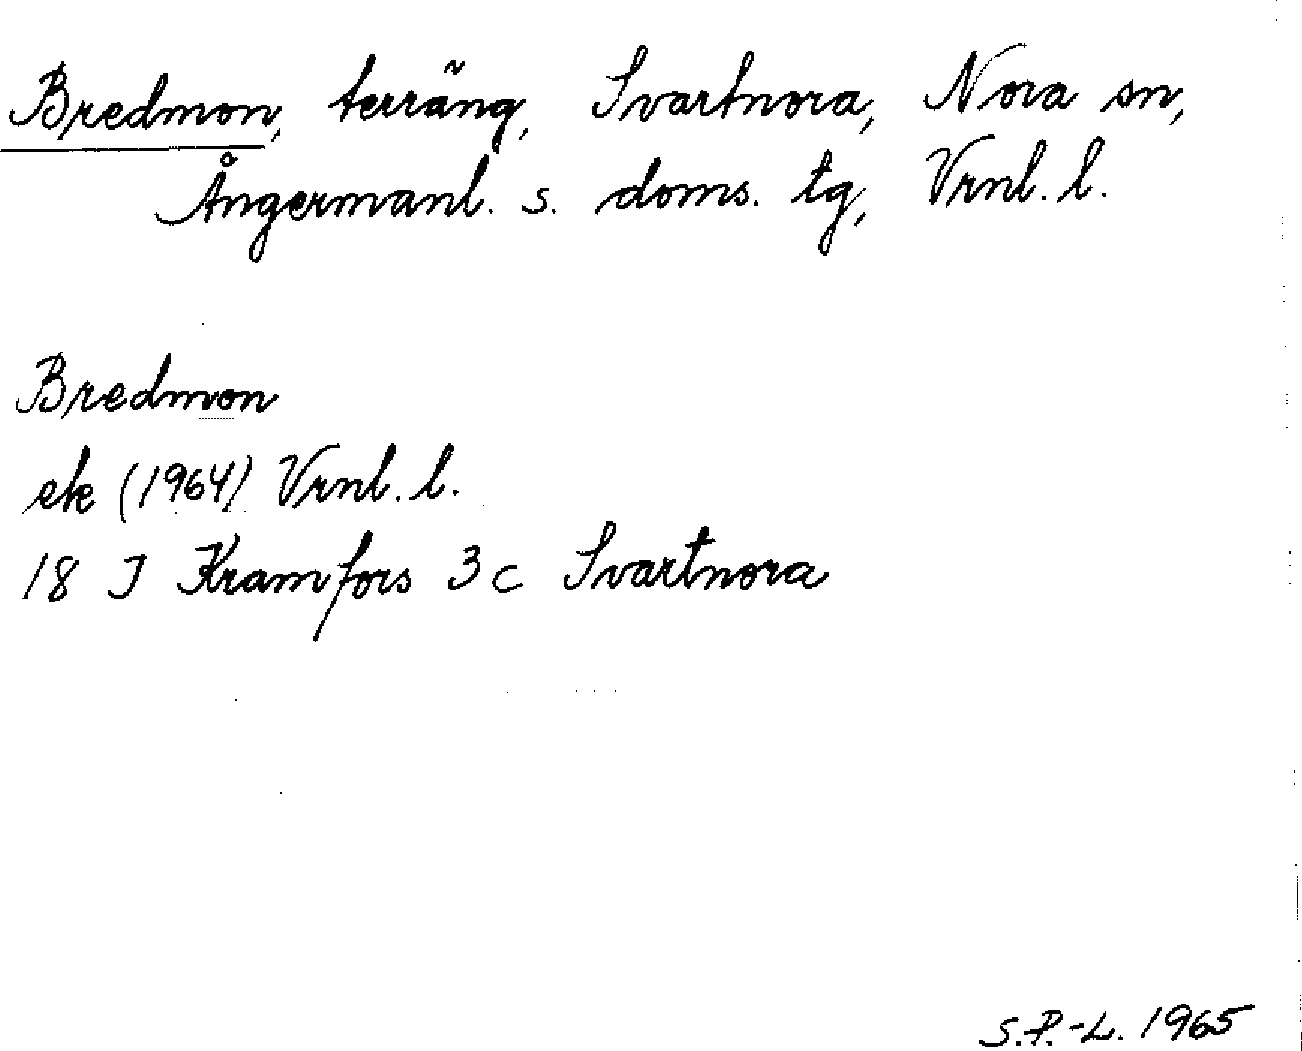 Bredmon, terräng, Svartnora, Nora sn,
Ångermanl. s. doms. tg, Vrnl. l.
Bredmon
ek (1964) Vrnl. l.
18 I Kramfors 3 c Svartnora
S.P.-L. 1965